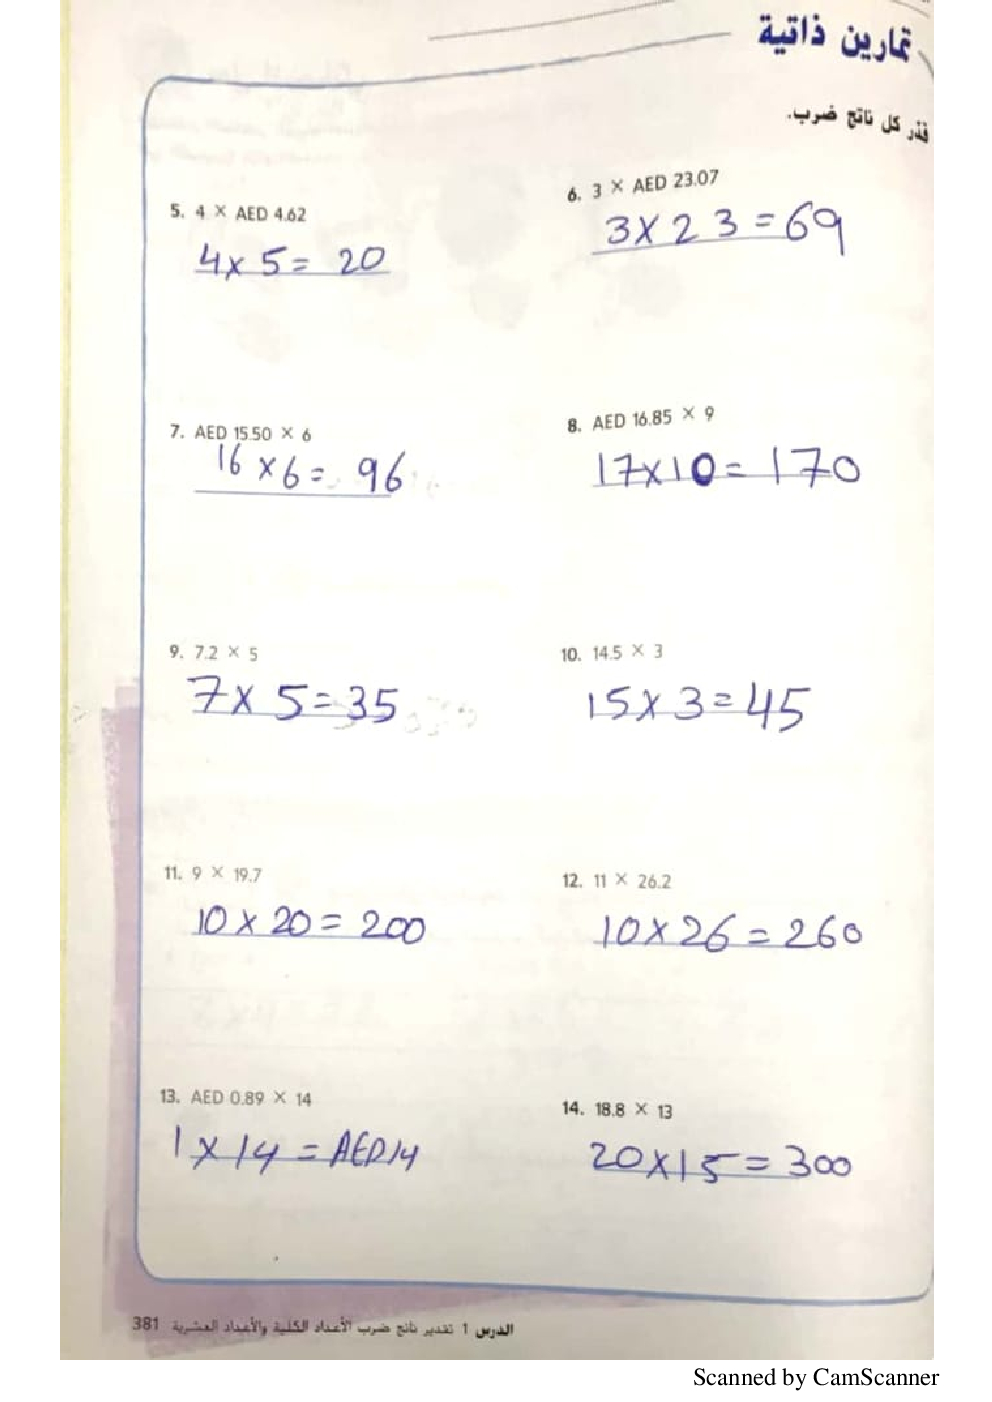 تمارين ذاتية
قدّر كل ناتج ضرب.
5. 4 × AED 4.62
4 x 5 = 20
6. 3 × AED 23.07
3 x 23 = 69
7. AED 15.50 × 6
16 x 6 = 96
8. AED 16.85 × 9
17 x 10 = 170
9. 7.2 × 5
7 x 5 = 35
10. 14.5 × 3
15 x 3 = 45
11. 9 × 19.7
10 x 20 = 200
12. 11 × 26.2
10 x 26 = 260
13. AED 0.89 × 14
1 x 14 = AED 14
14. 18.8 × 13
20 x 15 = 300
الدرس 1 تقدير ناتج ضرب الأعداد الكلية والأعداد العشرية 381
Scanned by CamScanner